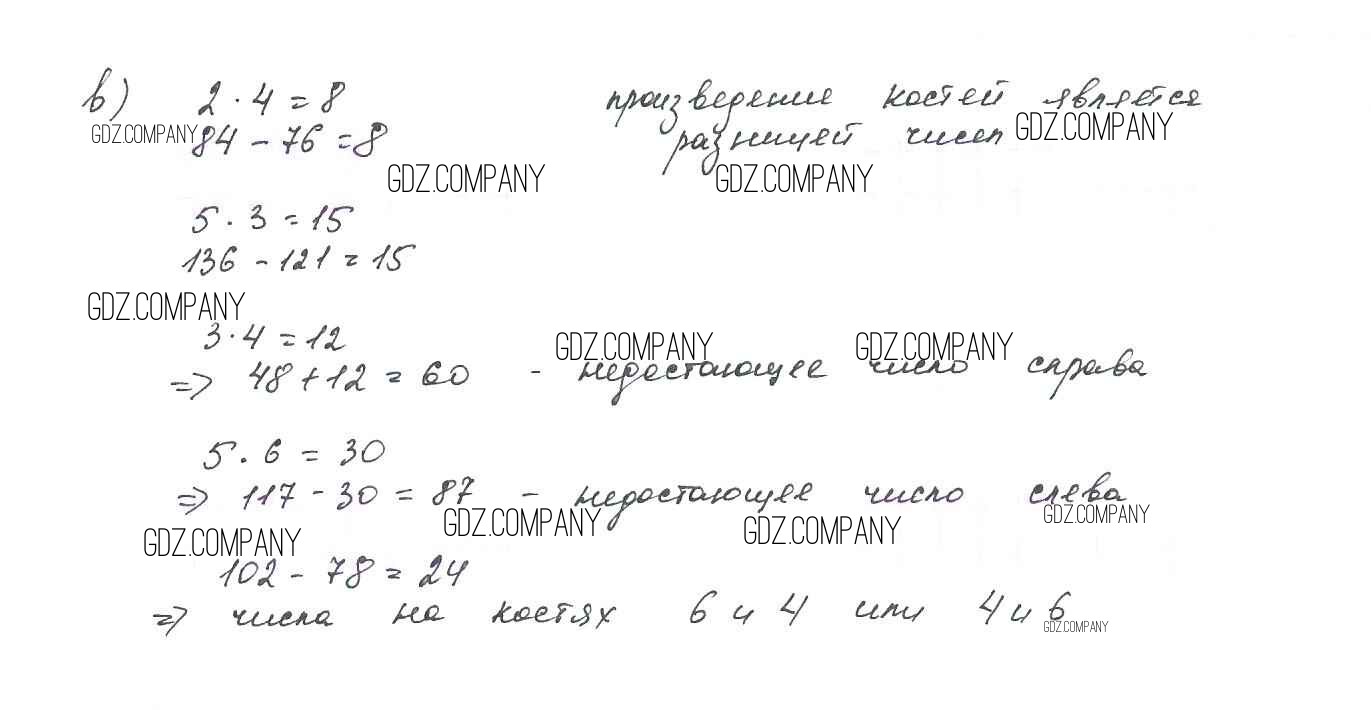 в) 2 · 4 = 8 произведение костей является
GDZ.COMPANY 84 - 76 = 8 разницей чисел GDZ.COMPANY
GDZ.COMPANY GDZ.COMPANY
5 · 3 = 15
136 - 121 = 15
GDZ.COMPANY
3 · 4 = 12 GDZ.COMPANY GDZ.COMPANY
=> 48 + 12 = 60 - недостающее число справа
5 · 6 = 30
=> 117 - 30 = 87 - недостающее число слева
GDZ.COMPANY GDZ.COMPANY GDZ.COMPANY GDZ.COMPANY
102 - 78 = 24
=> числа на костях 6 и 4 или 4 и 6
GDZ.COMPANY